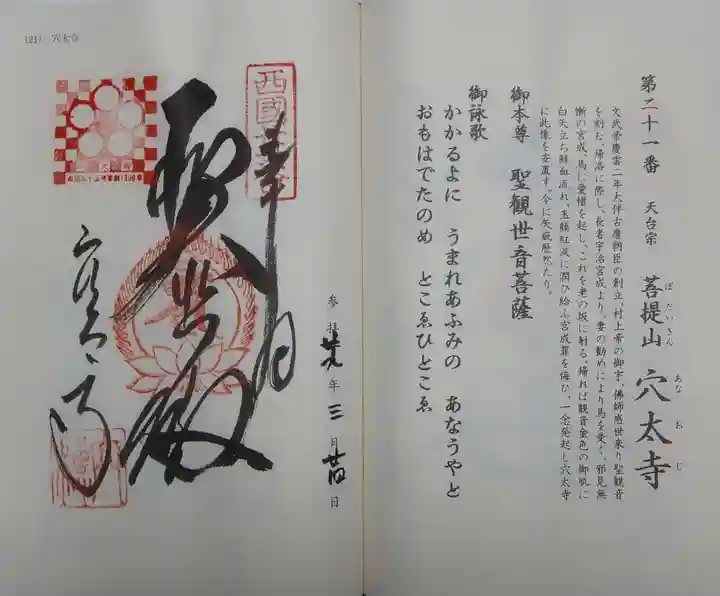 第二十一番 天台宗 菩提山 穴太寺
ぼだいさん
あなおじ
文武帝慶雲二年大伴古麿朝臣の創立、村上帝の御宇、佛師感世来り聖観音
を刻む、帰洛に際し、長者宇治宮成より、妻の勧めにより馬を受く、邪見無
慚の宮成、馬に愛惜を起し、これを老の坂に射る。帰れば観音金色の御胸に
白矢立ち鮮血流れ、玉顔紅涙に潤ひ給ふ宮成罪を悔ひ、一念発起し穴太寺
に此像を安置す。今に矢疵歴然たり。
御本尊 聖観世音菩薩
御詠歌
かかるよに うまれあふみの あなうやと
おもはでたのめ とこゑひとこゑ
(21) 穴太寺
奉拝
参拝廿九年三月廿四日